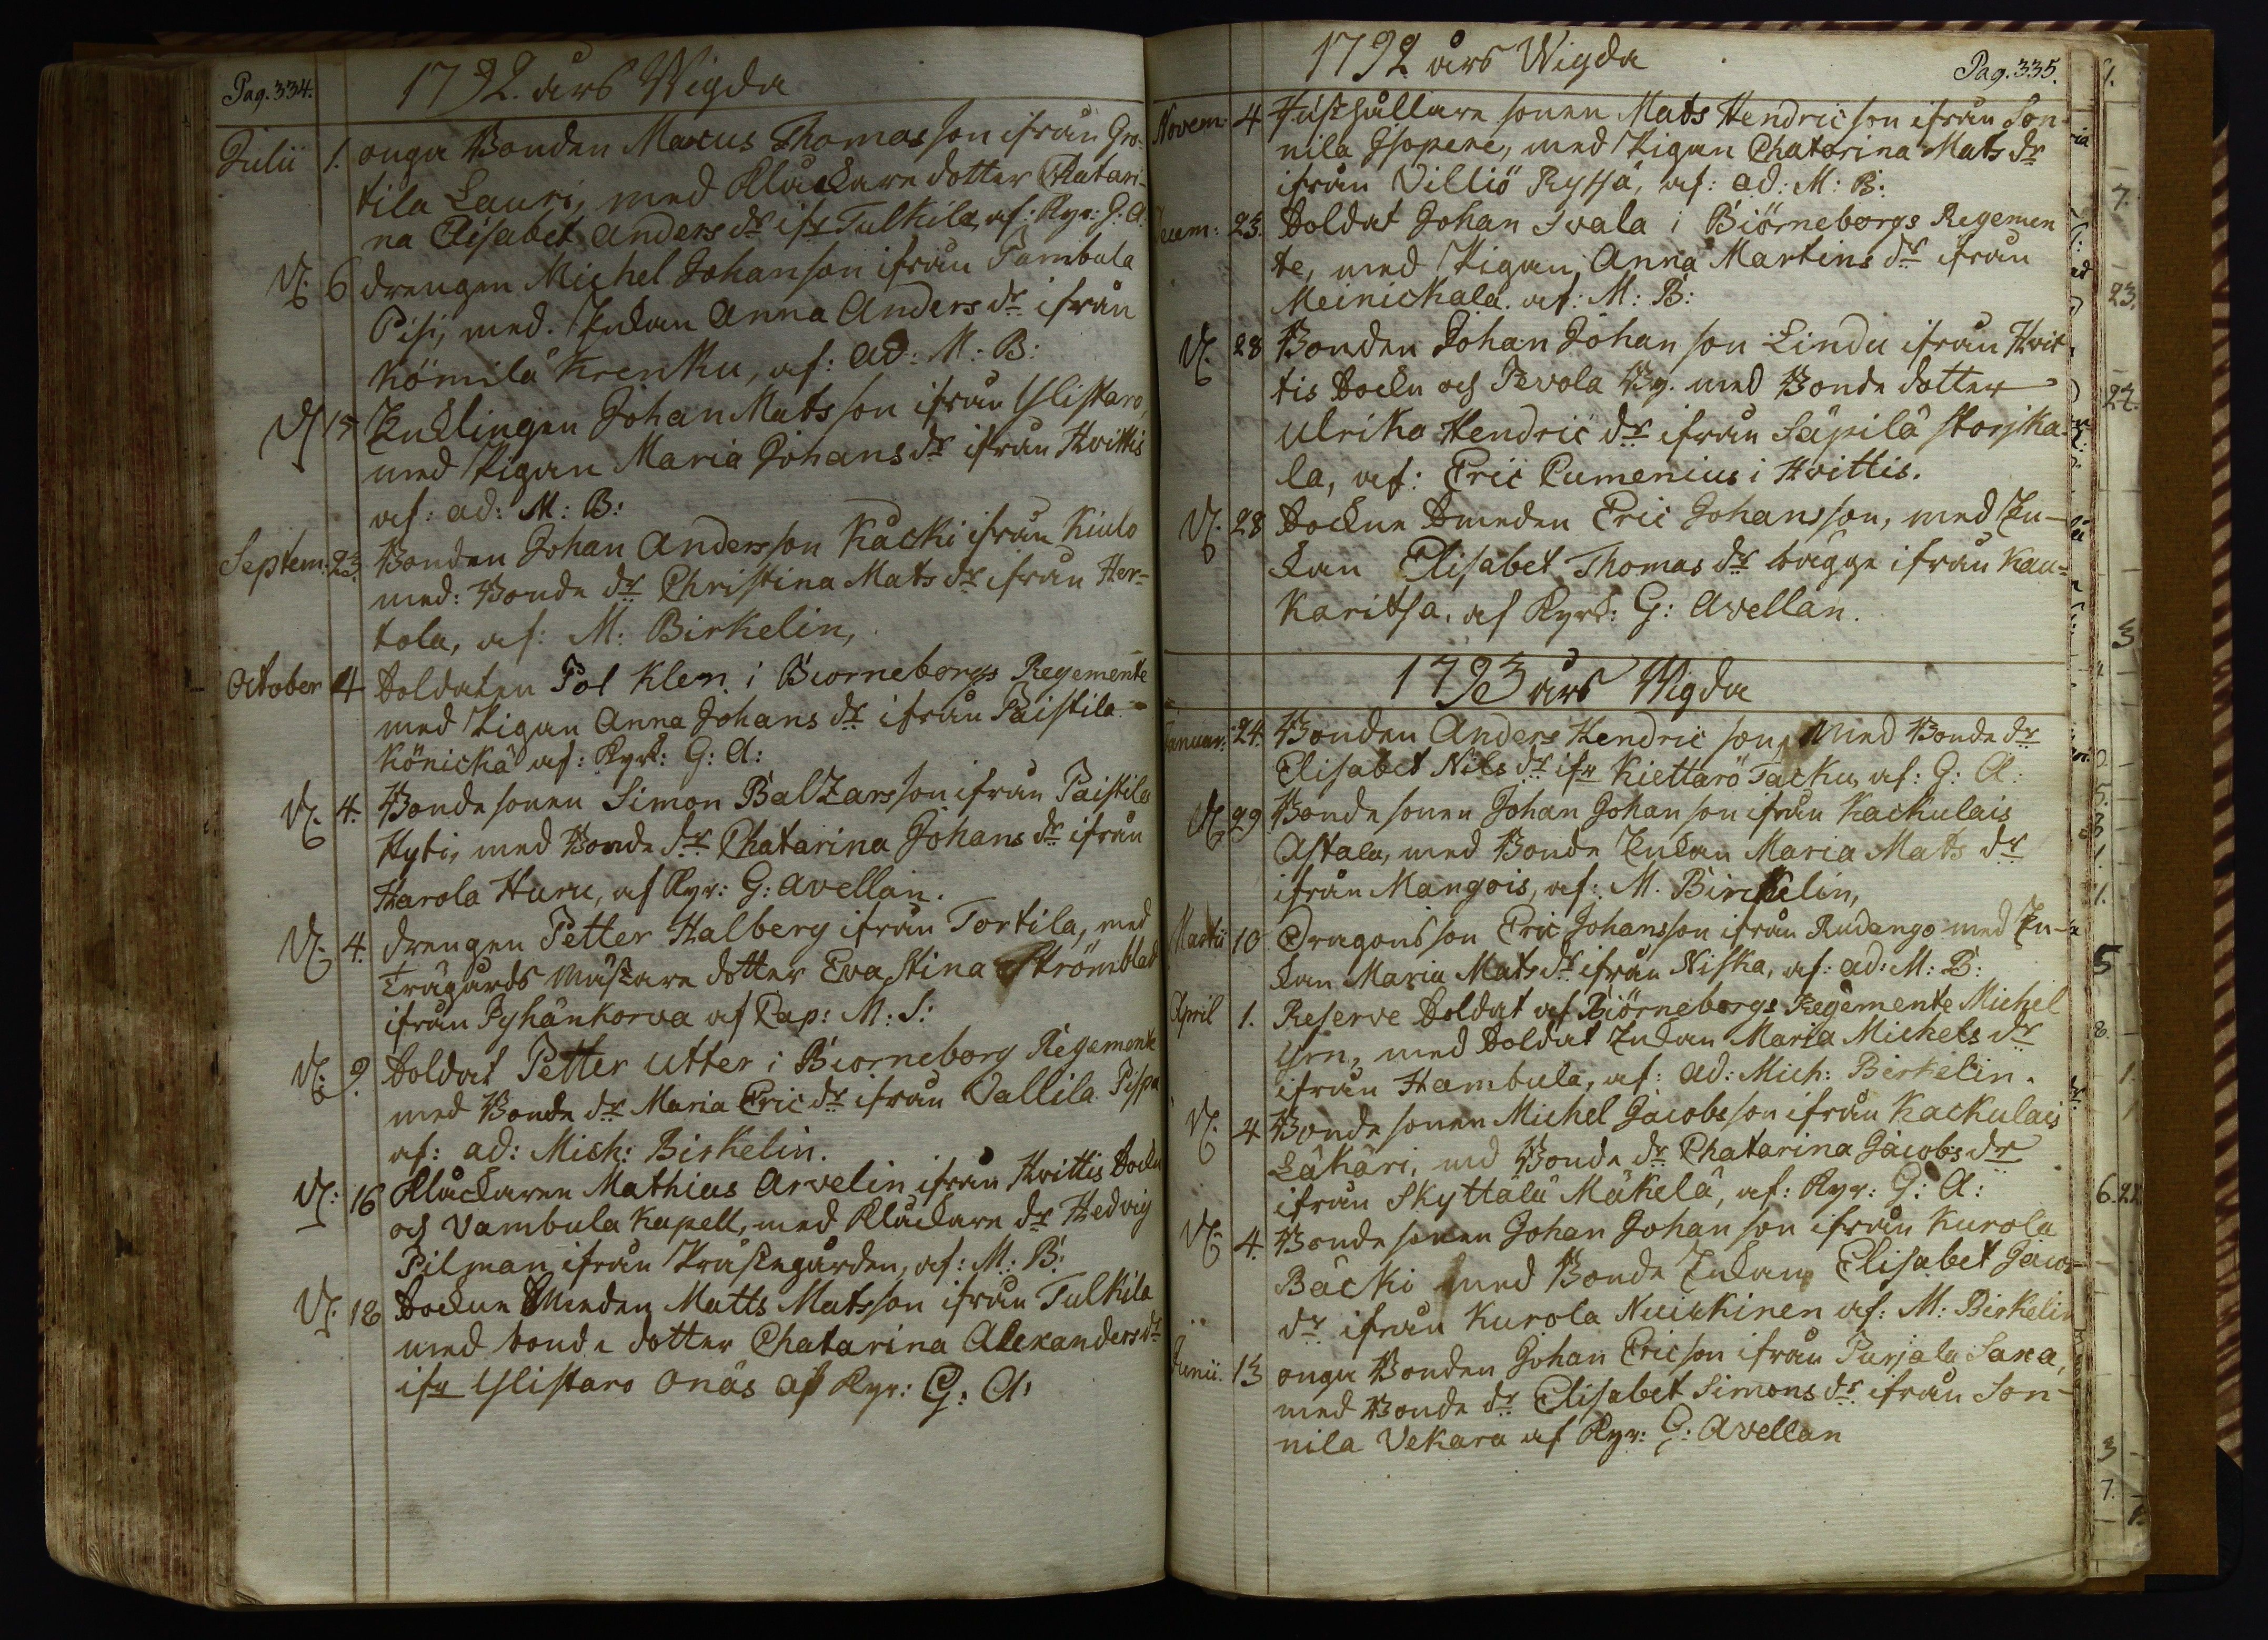 Pag. 334.
1792. års Wigda
Julii 1. unga Bonden Marcus Thomasson ifrån Gro-
tila Lauri, med Klåckare dotter Chatari-
na Elisabet Anders dr ifr Tulkila, af: Kyr: G. A.
D. 6 drengen Michel Johansson ifrån Tambula
Pisi, med. Enkan Anna Anders dr ifrån
Kömilä Krenku, af: ad: M: B:
D 15 Enklingen Johan Matsson ifrån Ylistaro,
med Pigan Maria Johans dr ifrån Hvittis
af: ad: M: B:
Septem: 23. Bonden Johan Andersson Kacki ifrån Kiulo
med: Bonde dr Christina Mats dr ifrån Her-
tola, af: M: Birkelin,
October 4 Soldaten Pol Klen i Biorneborgs Regemente
med Pigan Anna Johans dr ifrån Paistila
Könickä af: Kyrk: G: A:
D. 4. Bonde sonen Simon Baltzarsson ifrån Paistila
Hyti, med Bonde dr Chatarina Johans dr ifrån
Harola Huru, af Kyr: G: Avellan.
D. 4. drengen Petter Halberg ifrån Tortila, med
Trägårds mästare dotter Eva Stina Strömblad
ifrån Pyhänkorva af Cap: M: S:
D. 9. Soldat Petter Utter i Biorneborg Regemente
med Bonde dr Maria Eric dr ifrån Vallila Pispa
af: ad: Mich: Birkelin.
D: 16 Klåckaren Mathias Arvelin ifrån Hvittis Sockn
och Vambula Kapell, med Klåckare dr Hedvig
Pilman ifrån Prästegården, af: M: B:
D. 18 Sockne Smeden Matts Matsson ifrån Tulkila
med bonde dotter Chatarina Alexanders dr
ifr Ylistaro Onäs af Kyr: G: A:
1792 års Wigda
Pag. 335.
Novem: 4 Hushållare sonen Mats Hendricson ifrån Son-
nila Isopere, med Pigan Chatarina Mats dr
ifrån Villiö Ryssä, af: ad: M: B:
Decem: 23. Soldat Johan Svala i Biörneborgs Regemen
te, med Pigan, Anna Martins dr ifrån
Meinickala. af: M: B:
D. 28 Bonden Johan Johansson Lindu ifrån Hvit
tis Sockn och Jevola By. med Bonde dotter
Ulrika Hendric dr ifrån Säpilä Storjka-
la, af: Eric Cumenius i Hvittis.
D. 28 Sockne Smeden Eric Johansson, med En-
kan Elisabet Thomas dr bägge ifrån Kau-
karitsa, af Kyrk: G: Avellan.
1793 års Wigda
Januar: 24. Bonden Anders Hendricson, med Bonde dr
Elisabet Nils dr ifr Kiettarö Tacku, af: G: A:
D. 29 Bonde sonen Johan Johanson ifrån Kackulais
Astala, med Bonde Enkan Maria Mats dr
ifrån Mangois, af: M. Birckelin,
Martii 10 Dragonsson Eric Johansson ifrån Rudango med En-
kan Maria Mats dr ifrån Niska, af: ad: M: B:
April 1. Reserve Soldat af Biörneborgs Regemente Michel
Yrn, med Soldat Enkan Maria Michels dr
ifrån Hambula, af: ad: Mich: Birkelin.
D. 4 Bonde sonen Michel Jacobsson ifrån Kackulais
Läkäri, med Bonde dr Chatarina Jacobs dr
ifrån Skyttälä Mäkelä, af: Kyr: G: A:
D. 4. Bonde sonen Johan Johansson ifrån Kurola
Bäcki med Bonde Enkan Elisabet Jacobs
dr ifrån Kurola Nuickinen af: M: Birkelin
Junii. 13 unga Bonden Johan Ericson ifrån Purjala Saxa,
med Bonde dr Elisabet Simons dr ifrån Son-
nila Vekara af Kyr: G: Avellan